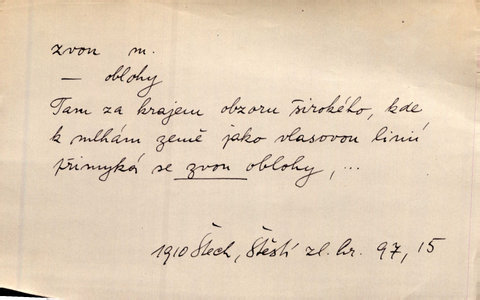 zvon m.
— oblohy
Tam za krajem obzoru širokého, kde
k mlhám země jako vlasovou linií
přimyká se zvon oblohy, ...
1910 Štech, Štěstí zl. hr. 97, 15